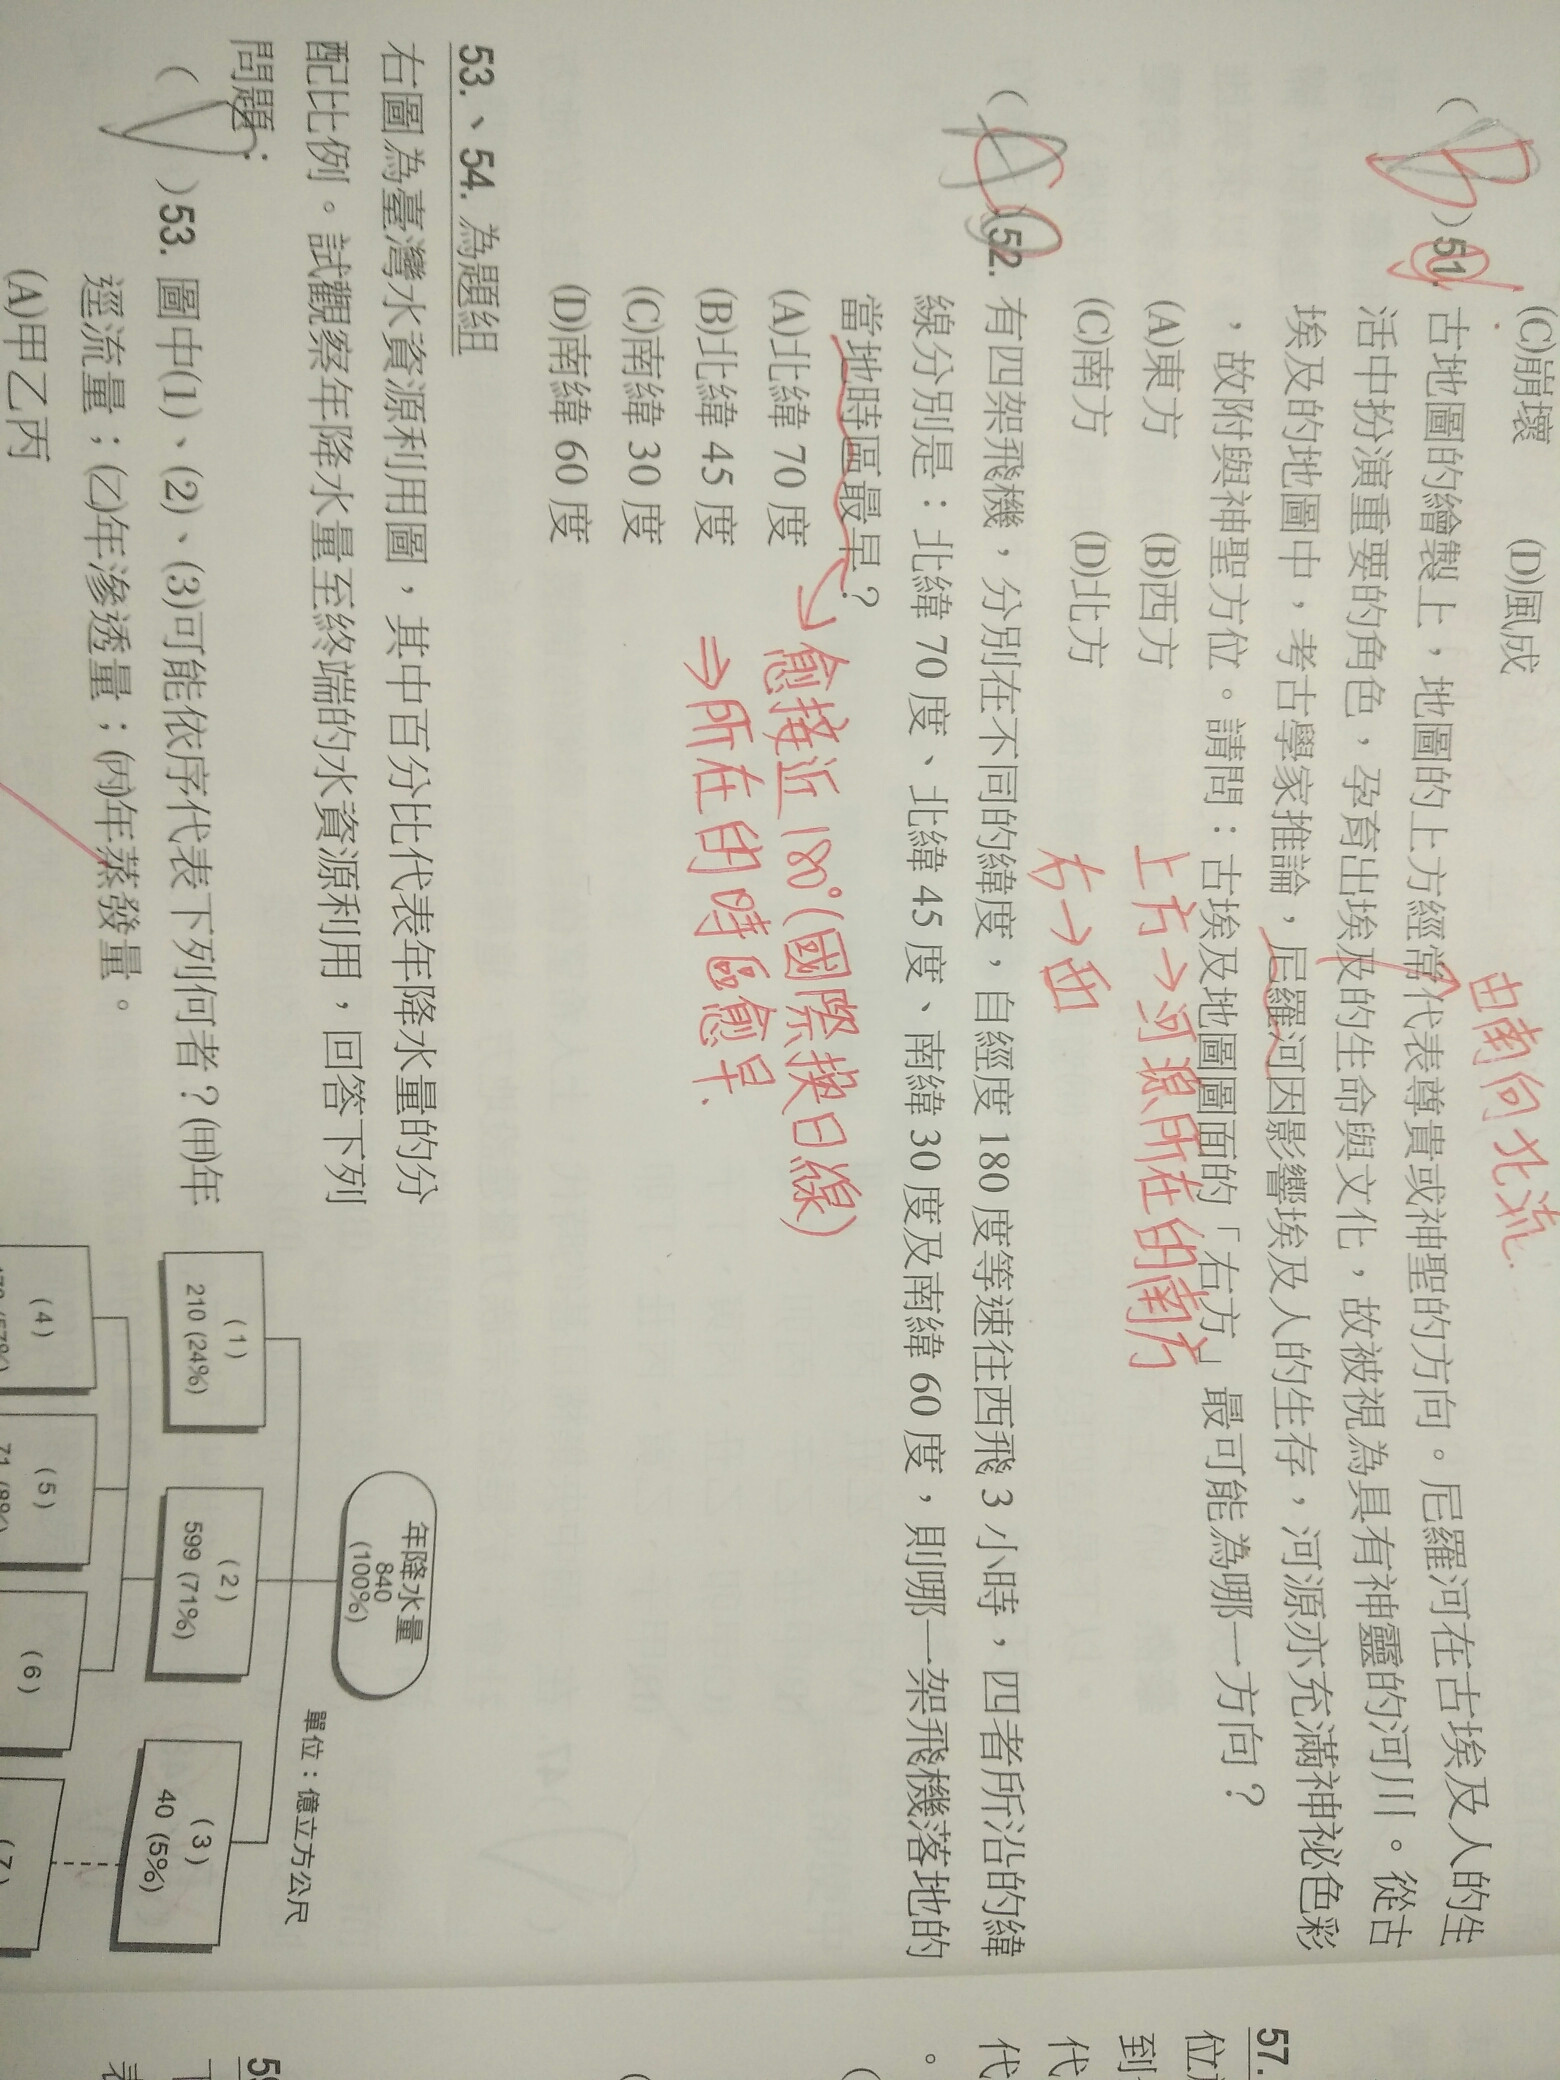 (C)崩壞 (D)風成
由南向北流
( B )51. 古地圖的繪製上，地圖的上方經常代表尊貴或神聖的方向。尼羅河在古埃及人的生
活中扮演重要的角色，孕育出埃及的生命與文化，故被視為具有神靈的河川。從古
埃及的地圖中，考古學家推論，尼羅河因影響埃及人的生存，河源亦充滿神祕色彩
，故附與神聖方位。請問：古埃及地圖圖面的「右方」最可能為哪一方向？
(A)東方 (B)西方
上方→河源所在的南方
(C)南方 (D)北方
右→西
( )52. 有四架飛機，分別在不同的緯度，自經度 180 度等速往西飛 3 小時，四者所沿的緯
線分別是：北緯 70 度、北緯 45 度、南緯 30 度及南緯 60 度，則哪一架飛機落地的
當地時區最早？
(A)北緯 70 度
愈接近 180°(國際換日線)
(B)北緯 45 度
⇒所在的時區愈早.
(C)南緯 30 度
(D)南緯 60 度
53.、54. 為題組
右圖為臺灣水資源利用圖，其中百分比代表年降水量的分
配比例。試觀察年降水量至終端的水資源利用，回答下列
問題：
( )53. 圖中(1)、(2)、(3)可能依序代表下列何者？(甲)年
逕流量；(乙)年滲透量；(丙)年蒸發量。
(A)甲乙丙
年降水量
840
(100%)
單位：億立方公尺
(1)
210 (24%)
(2)
599 (71%)
(3)
40 (5%)
(4)
(5)
71 (8%)
(6)
(7)
57.
位
到
代
代
。